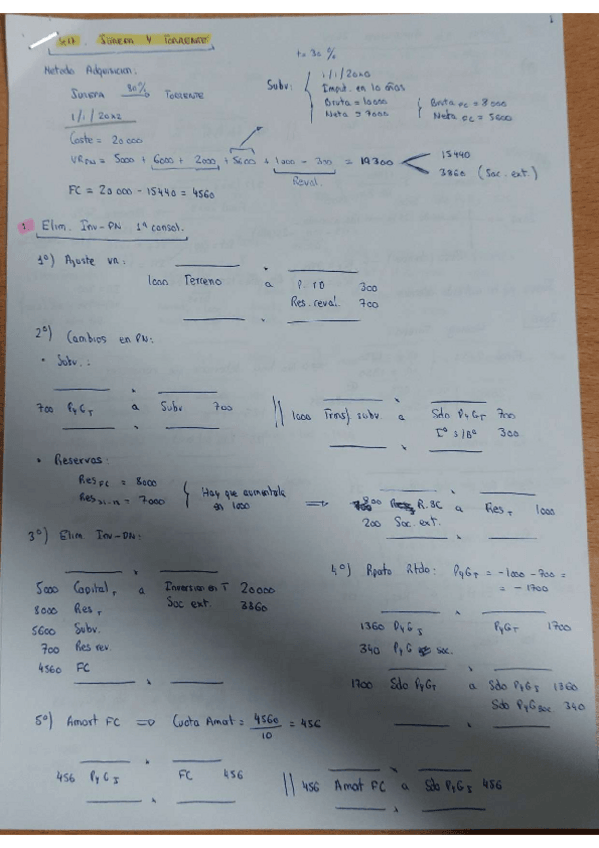 1
SINERA Y TORRENTE
t = 30 %
Metodo Adquisicion:
SINERA 80% TORRENTE
Subv: 1/1/20x0
Imput. en 10 años
Bruta = 10000
Neta = 7000
Bruta FC = 8000
Neta FC = 5600
1/1/20x2
Coste = 20 000
VR PN = 5000 + 6000 + 2000 + 5600 + 1000 - 300 = 19300
15440
3860 (Soc. ext.)
Reval.
FC = 20 000 - 15440 = 4560
1 Elim. Inv-PN 1ª consol.
1º) Ajuste VR:
1000 Terreno a P. TD 300
Res. reval. 700
2º) Cambios en PN:
• Subv.:
700 PyG T a Subv 700 || 1000 Transf. subv. a Sdo PyG T 700
Iº s/Bº 300
• Reservas:
Res FC = 8000
Hay que aumentarla en 1000
= 7000
⇒ 800 R. SC a Res T 1000
200 Soc. ext.
3º) Elim Inv-PN:
5000 Capital T a Inversion en T 20000
8000 Res T Soc ext. 3860
5600 Subv.
700 Res rev.
4560 FC
4º) Rpato Rtdo: PyG T = -1000 - 700 =
= -1700
1360 PyG S PyG T 1700
340 PyG soc.
1700 Sdo PyG T a Sdo PyG S 1360
Sdo PyG soc 340
5º) Amort FC ⇒ Cuota Amat = 4560/10 = 456
456 PyG S FC 456 || 456 Amat FC a Sdo PyG S 456